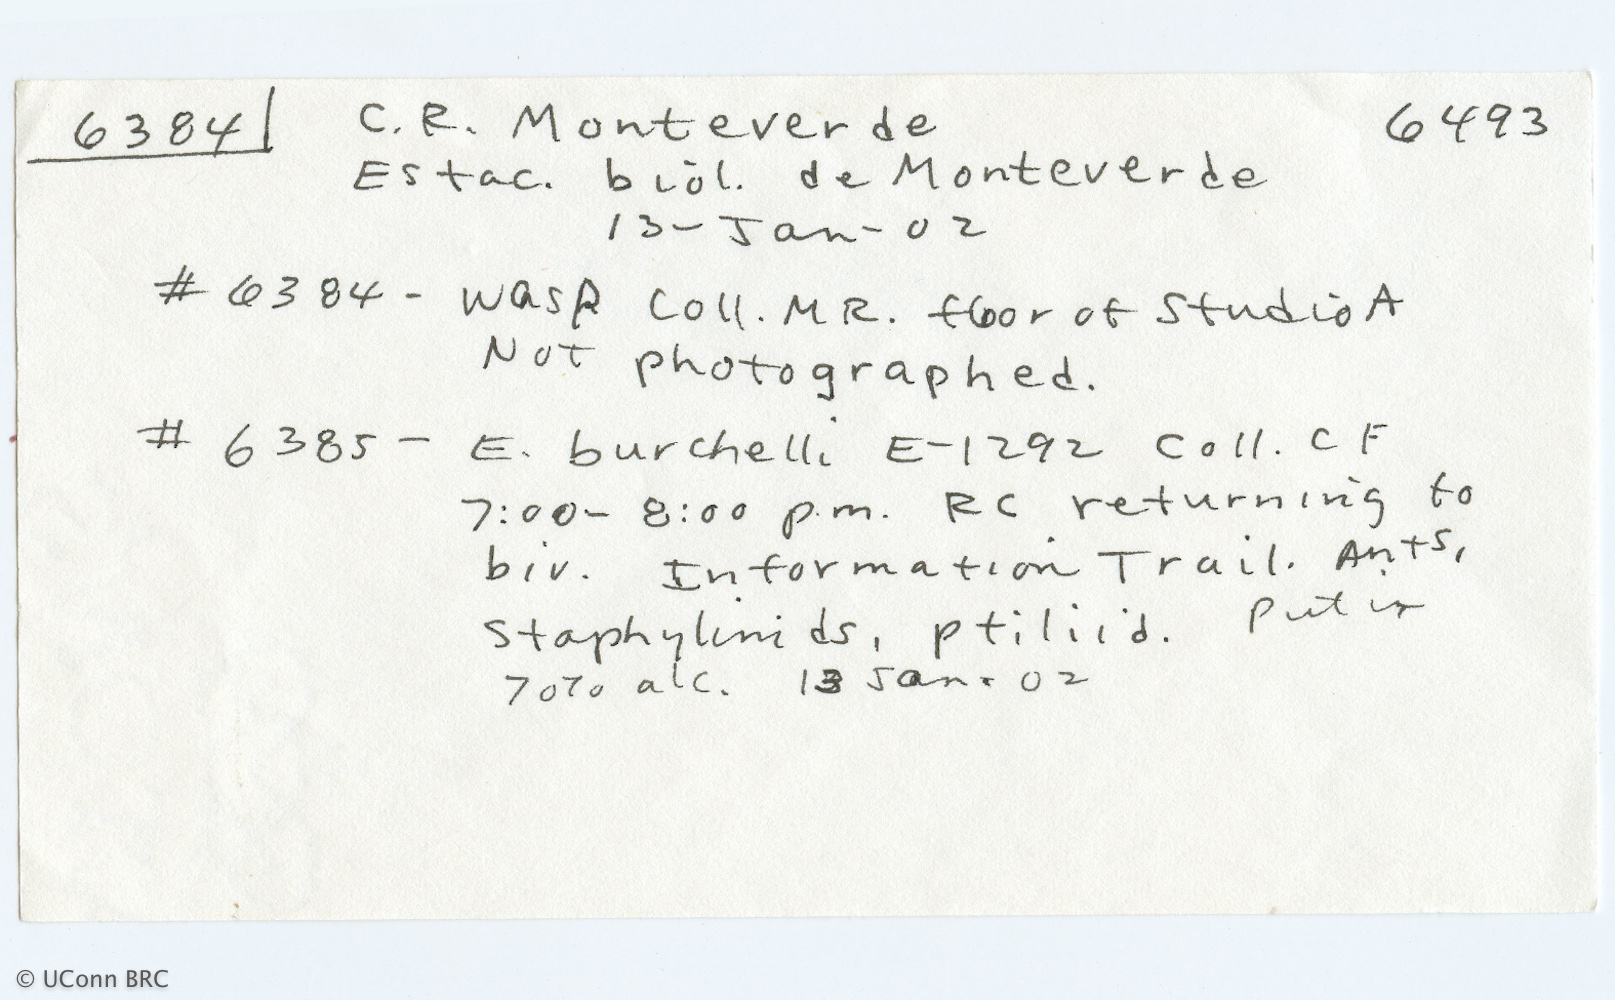 6384 C.R. Monteverde 6493
Estac. biol. de Monteverde
13-Jan-02
# 6384 - wasp coll. MR. floor of Studio A
Not photographed.
# 6385 - E. burchelli E-1292 coll. CF
7:00-8:00 p.m. RC returning to
biv. Information Trail. Ants,
Staphylinids, ptiliid. Put in
70% alc. 13 Jan. 02
© UConn BRC